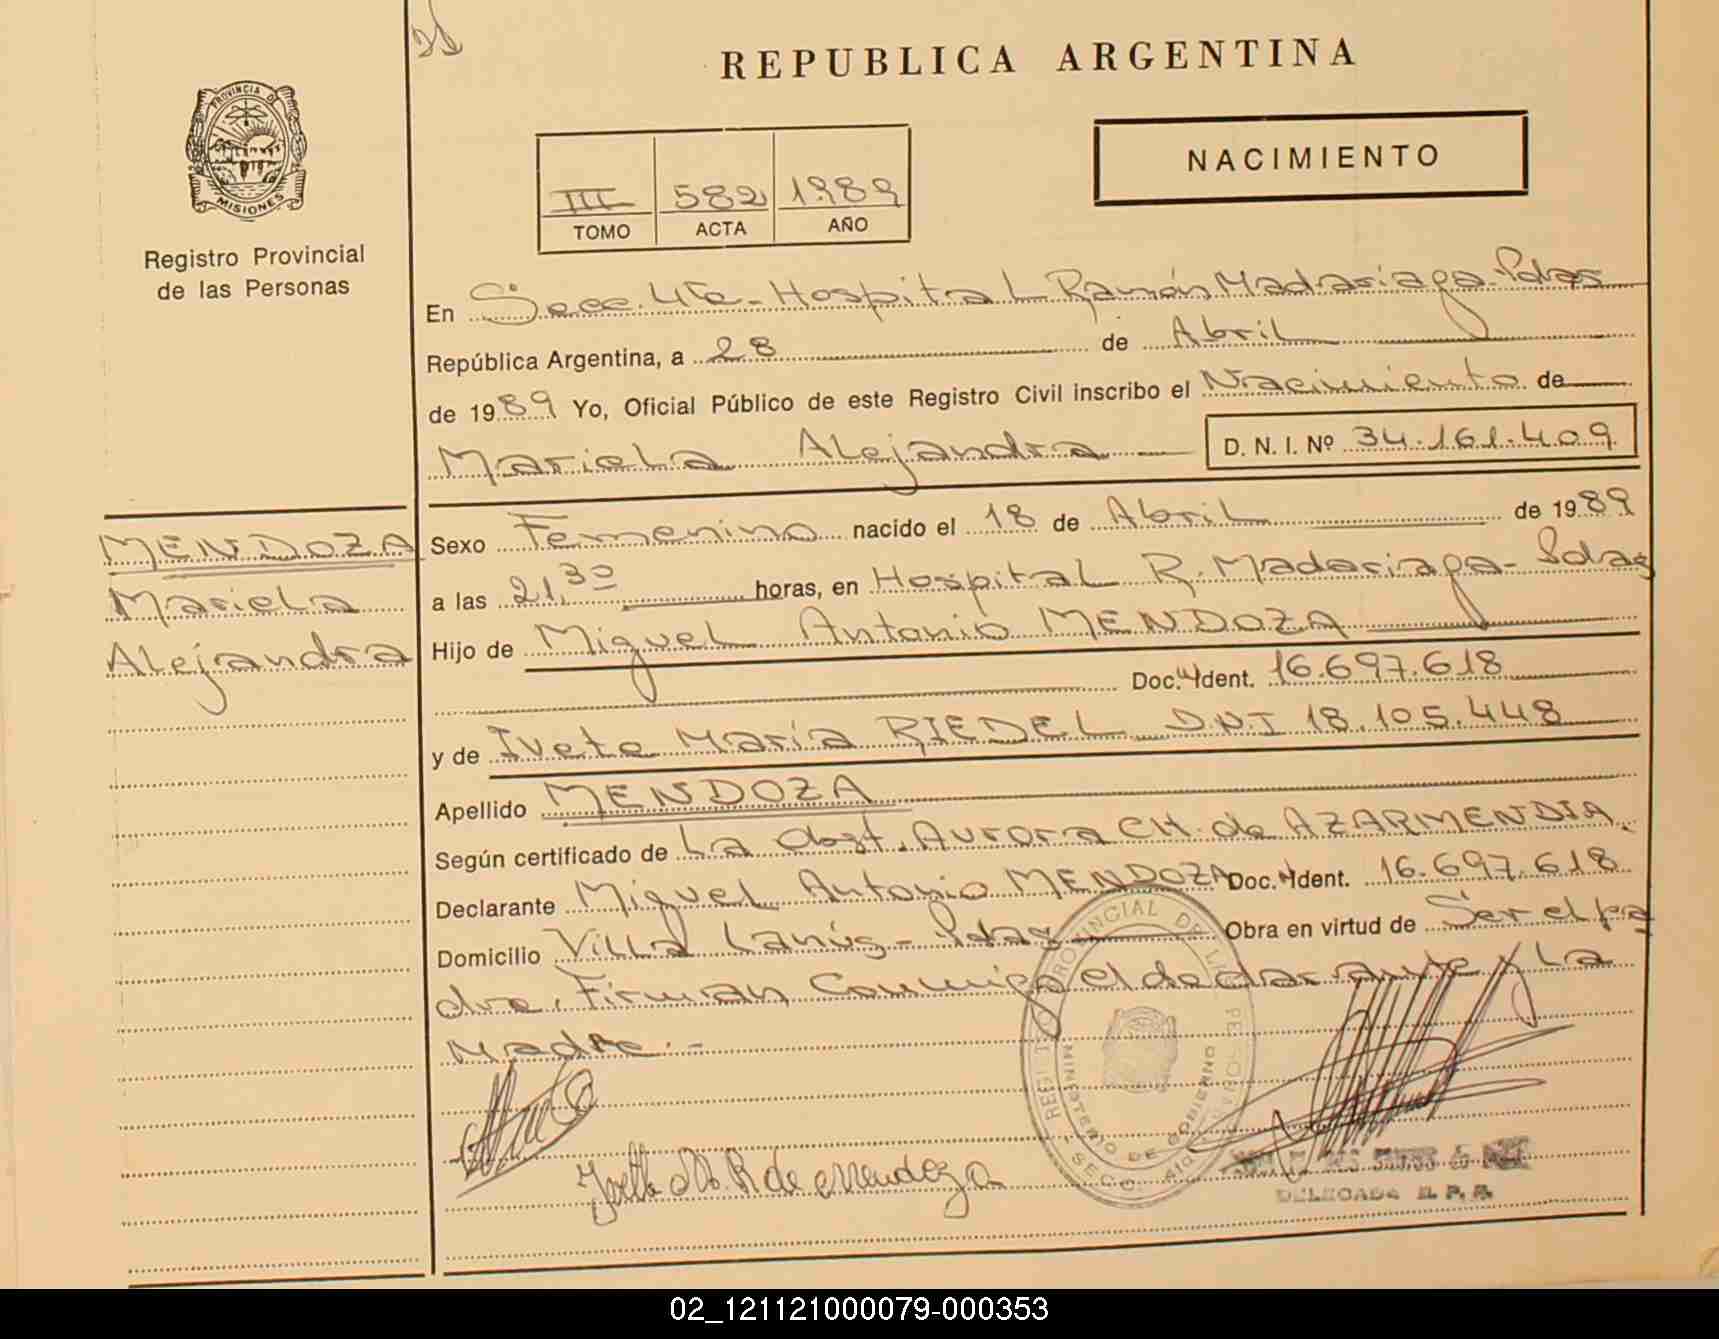 REPUBLICA ARGENTINA
PROVINCIA DE
MISIONES
Registro Provincial
de las Personas
III 582 1989
TOMO ACTA AÑO
NACIMIENTO
En Secc. 4ta - Hospital Ramón Madariaga - Pdas
República Argentina, a 28 de Abril
de 1989 Yo, Oficial Público de este Registro Civil inscribo el Nacimiento de
Mariela Alejandra D. N. I. Nº 34.161.409
MENDOZA
Mariela
Alejandra
Sexo Femenino nacido el 18 de Abril de 1989
a las 21,30 horas, en Hospital R. Madariaga - Pdas
Hijo de Miguel Antonio MENDOZA
Doc. Ident. 16.697.618
y de Ivete María RIEDEL D.N.I 18.105.448
Apellido MENDOZA
Según certificado de La Obst. Aurora CH. de AZARMENDIA.
Declarante Miguel Antonio MENDOZA Doc. Ident. 16.697.618
Domicilio Villa Lanús - Pdas Obra en virtud de Ser el pa
dre. Firman Conmigo el declarante y La
Madre. -
Ivette M. R de Mendoza
MINISTERIO DE GOBIERNO
DELEGADA R. P. P.
02_121121000079-000353